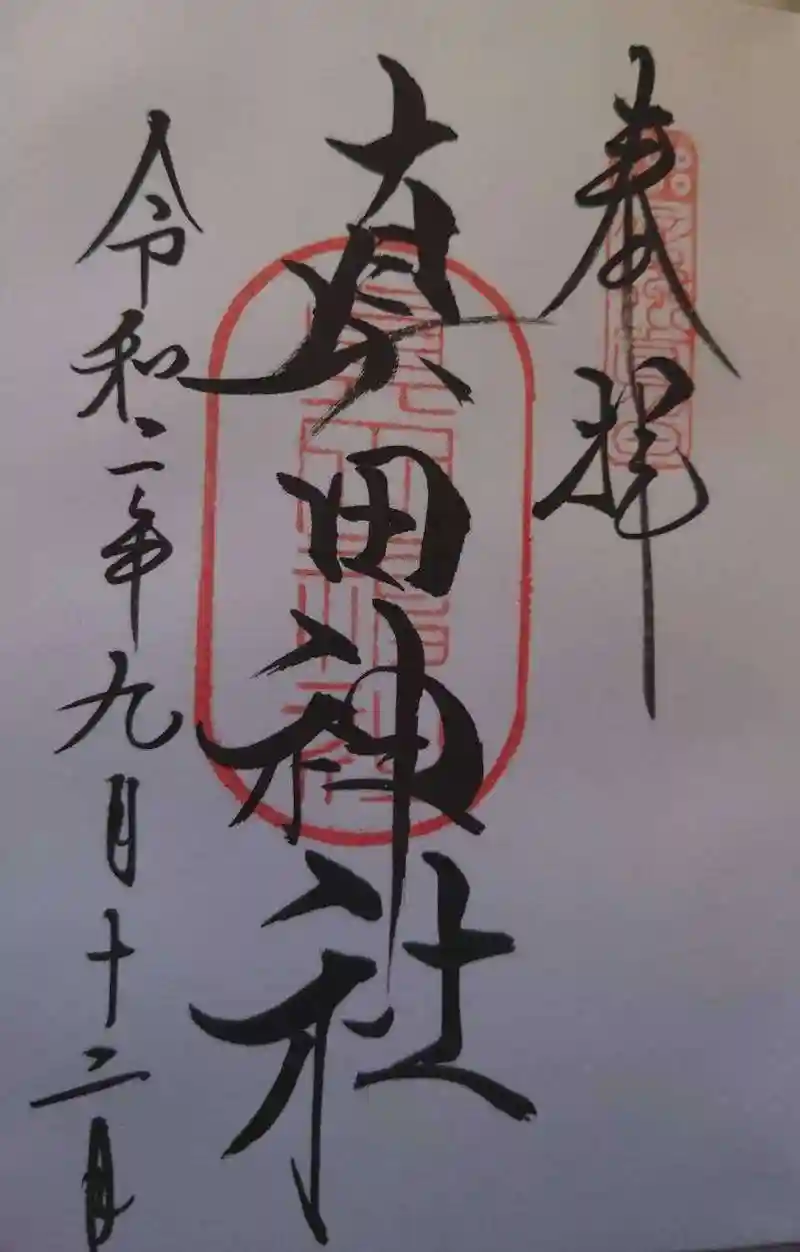 奉拝
真田神社
令和二年九月十二日